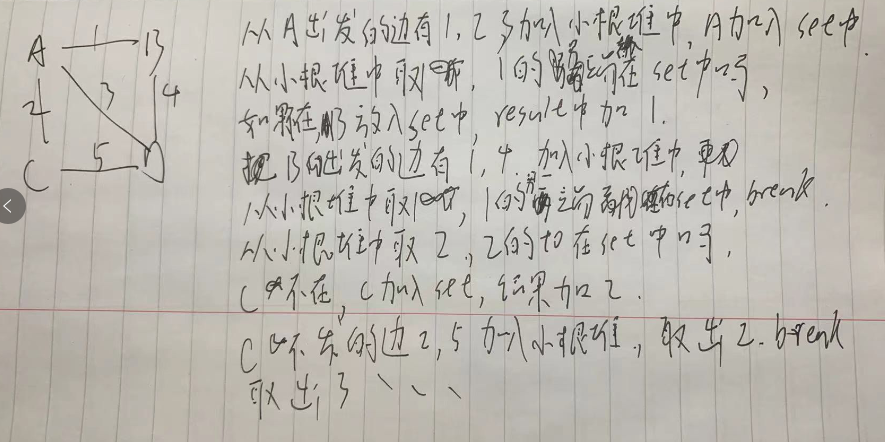 A 1 B
2 3 4
C 5 D
从A出发的边有1,2,3加入小根堆中,A加入set中.
从小根堆中取1, 1的 在set中吗,
如果不在,B放入set中, result中加1.
把B出发的边有1,4.加入小根堆中,
从小根堆中取1, 1的 set中, break.
从小根堆中取2, 2的to在set中吗,
C不在,C加入set, 结果加2.
C 发的边2,5加入小根堆, 取出2. break
取出3 、、、